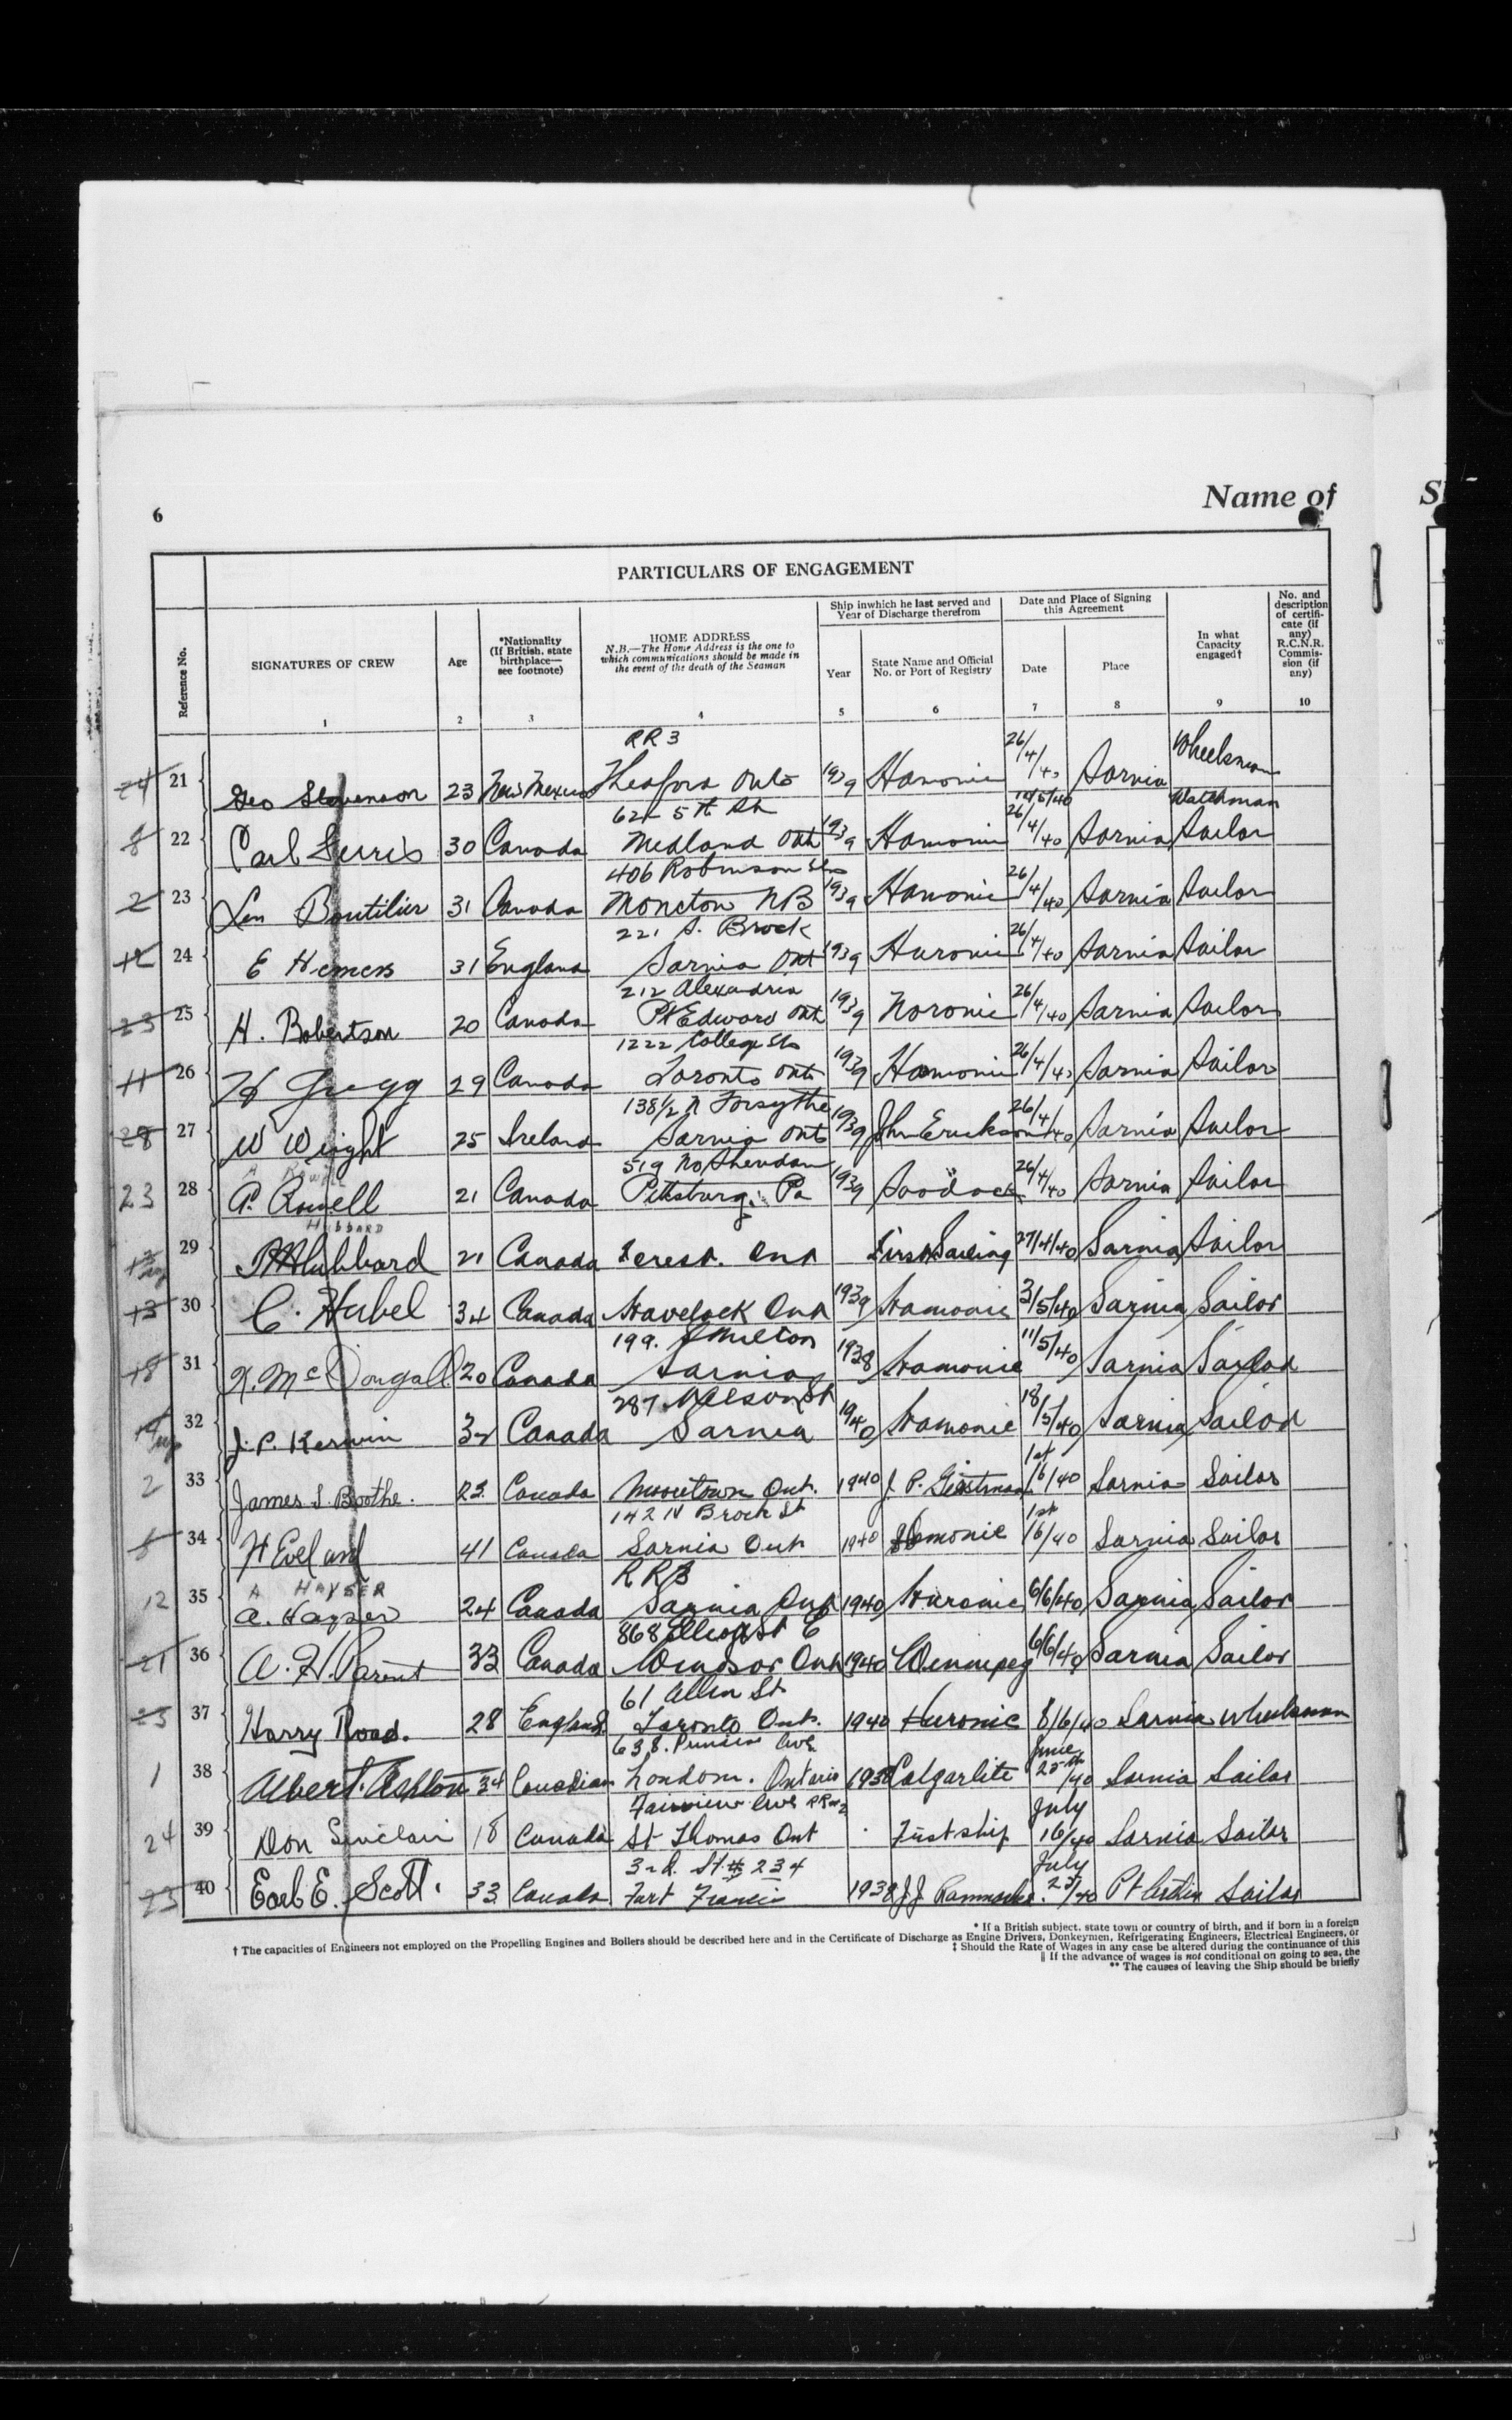 6
Name of
S
PARTICULARS OF ENGAGEMENT
Reference No.
SIGNATURES OF CREW
1
Age
2
*Nationality
(If British, state
birthplace—
see footnote)
3
HOME ADDRESS
N.B.—The Home Address is the one to
which communications should be made in
the event of the death of the Seaman
4
Ship inwhich he last served and
Year of Discharge therefrom
Year
5
State Name and Official
No. or Port of Registry
6
Date and Place of Signing
this Agreement
Date
7
Place
8
In what
Capacity
engaged†
9
No. and
description
of certifi-
cate (if
any)
R.C.N.R.
Commis-
sion (if
any)
10
RR 3
24 21 Geo Stevenson 23 New Mexico Thesford Onto 1939 Hamonic 26/4/40 Sarnia Wheelsman
624 5th St 14/5/40 Watchman
8 22 Carl 30 Canada Midland Ont 1939 Hamonic 26/4/40 Sarnia Sailor
406 Robinson St
2 23 Len Boutilier 31 Canada Moncton NB 1939 Hamonic 26/4/40 Sarnia Sailor
221 S. Brock
12 24 E Hemers 31 England Sarnia Ont 1939 Huronic 26/4/40 Sarnia Sailor
212 Alexandria
23 25 H. Robertson 20 Canada Pt Edward Ont 1939 Noronic 26/4/40 Sarnia Sailor
1222 College St
11 26 H Gregg 29 Canada Toronto Ont 1939 Hamonic 26/4/40 Sarnia Sailor
138½ N Forsythe
28 27 W Wright 25 Ireland Sarnia Ont 1939 Jhn Erickson 26/4/40 Sarnia Sailor
519 No Sheridan
23 28 A. Rowell 21 Canada Pittsburg. Pa 1939 Soodoc 26/4/40 Sarnia Sailor
HUBBARD
29 Hubbard 21 Canada Ont First Sailing 27/4/40 Sarnia Sailor
13 30 C. Hubel 34 Canada Havelock Ont 1939 Hamonic 3/5/40 Sarnia Sailor
199. S Milton
18 31 K. McDougall 20 Canada Sarnia 1938 Hamonic 11/5/40 Sarnia Sailor
287 Nelson St
32 J. P. Kerwin 32 Canada Sarnia 1940 Hamonic 18/5/40 Sarnia Sailor
1st
2 33 James S Boothe. 23 Canada Mooretown Ont. 1940 J. P. /6/40 Sarnia Sailor
142 N Brock St 1st
5 34 H Eveland 41 Canada Sarnia Ont 1940 Hamonic /6/40 Sarnia Sailor
A HAYSER RR3
12 35 A. Hayser 24 Canada Sarnia Ont 1940 Huronic 6/6/40 Sarnia Sailor
868 Elliott St E
21 36 A. H. Parent 33 Canada Windsor Ont 1940 Winnipeg 6/6/40 Sarnia Sailor
61 Allen St
25 37 Harry Road. 28 England Toronto Ont. 1940 Huronic 8/6/40 Sarnia Wheelsman
638. Ave June
1 38 Albert. Ashton 34 Canadian London. Ontario 1938 Calgarlite 25th/40 Sarnia Sailor
Fairview Ave RR#2 July
24 39 Don Sinclair 18 Canada St Thomas Ont First ship 16/40 Sarnia Sailor
3rd. St. # 234 July
23 40 Earl E. Scott. 33 Canada. Fort Francis 1938 J J 25/40 Pt Sailor
* If a British subject, state town or country of birth, and if born in a foreign
† The capacities of Engineers not employed on the Propelling Engines and Boilers should be described here and in the Certificate of Discharge as Engine Drivers, Donkeymen, Refrigerating Engineers, Electrical Engineers, or
‡ Should the Rate of Wages in any case be altered during the continuance of this
‖ If the advance of wages is not conditional on going to sea, the
** The causes of leaving the Ship should be briefly